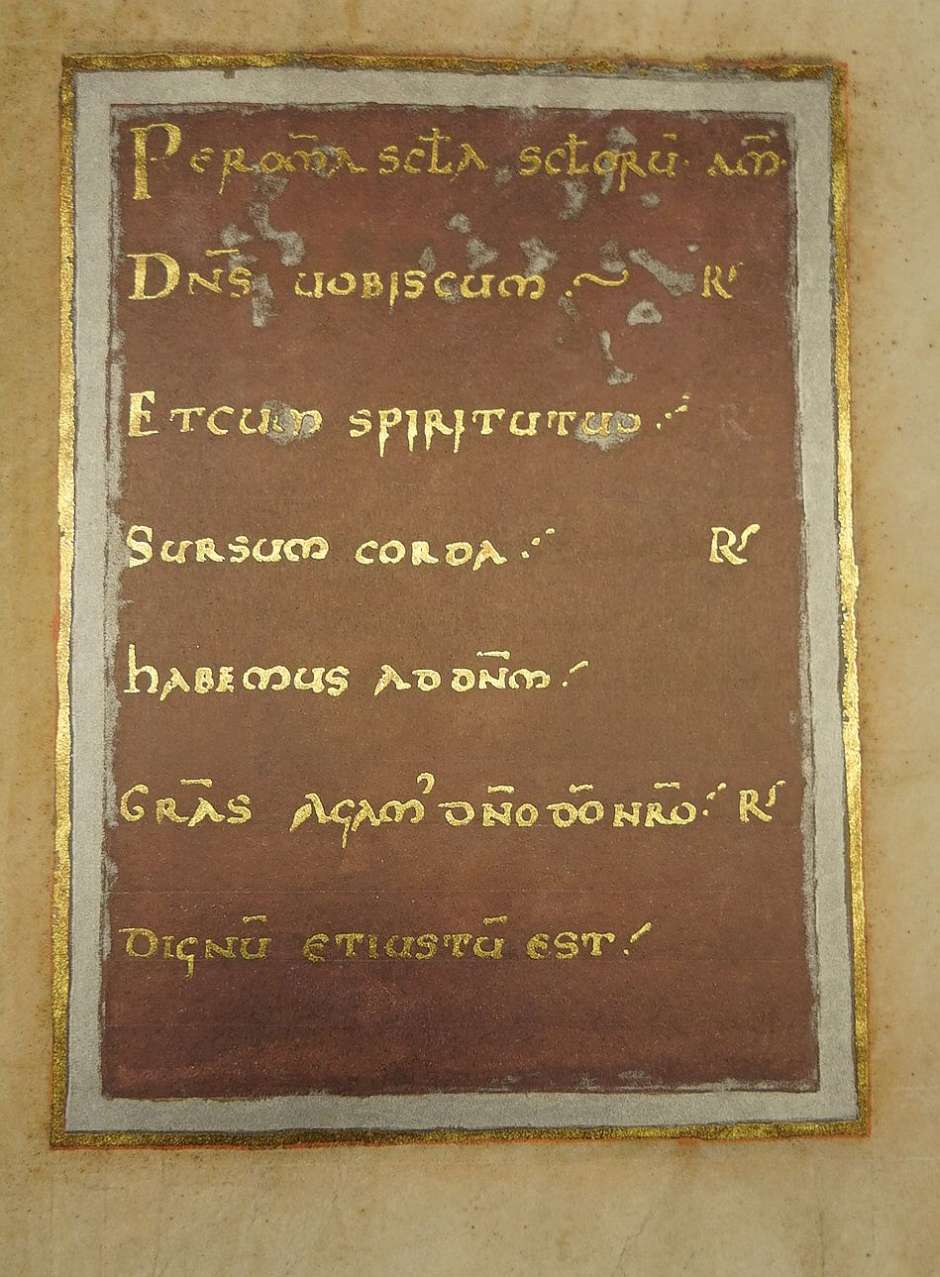 Per om̄a sc̄la sc̄lorū· am̄·
Dn̄s uobiscum .~ Rſ
Et cum spiritu tuo .·´ R
Sursum corda .·´ Rſ
habemus ad dn̄m .´
Gr̄as agam᾽ dn̄o dō nr̄o .´ Rſ
Dignū et iustū est .´